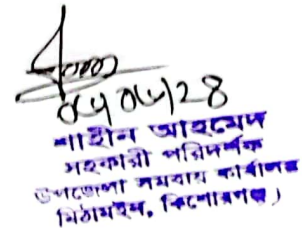 শাহীন আহমেদ
সহকারী পরিদর্শক
উপজেলা সমবায় কার্যালয়
মিঠামইন, কিশোরগঞ্জ।